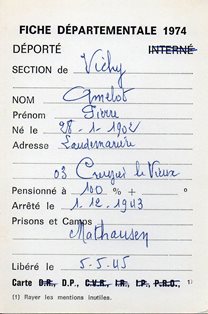 FICHE DÉPARTEMENTALE 1974
DÉPORTÉ INTERNÉ
SECTION de Vichy
NOM Amelot
Prénom Pierre
Né le 28-1-1902
Adresse Laudemarière
03 Creuzier le Vieux
Pensionné à 100 % + °
Arrêté le 1.12.1943
Prisons et Camps
Mathausen
Libéré le 5-5-45
Carte D.R., D.P., C.V.R., I.R., I.P., P.R.O., 1)
(1) Rayer les mentions inutiles.